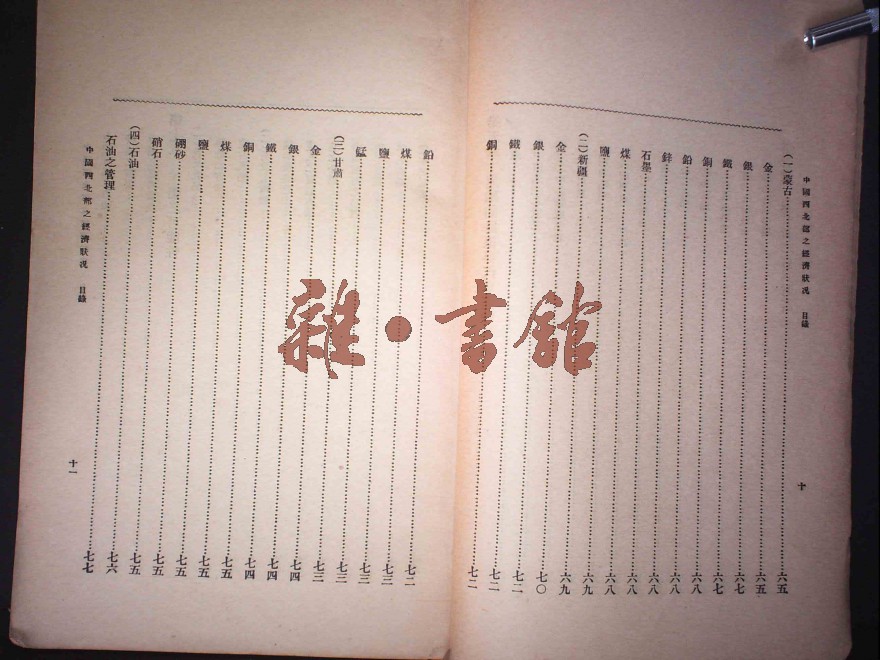 中國西北部之經濟狀况 目錄 十
(一)蒙古……六五
金……六五
銀……六七
鐵……六七
銅……六八
鉛……六八
鋅……六八
石墨……六八
煤……六八
鹽……六九
(二)新疆……六九
金……七〇
銀……七二
鐵……七二
銅……七二
鉛……七二
煤……七三
鹽……七三
錳……七三
(三)甘肅……七三
金……七四
銀……七四
鐵……七四
銅……七五
煤……七五
鹽……七五
硼砂……七五
硝石……七五
(四)石油……七六
石油之管理……七七
中國西北部之經濟狀况 目錄 十一
雜·書館